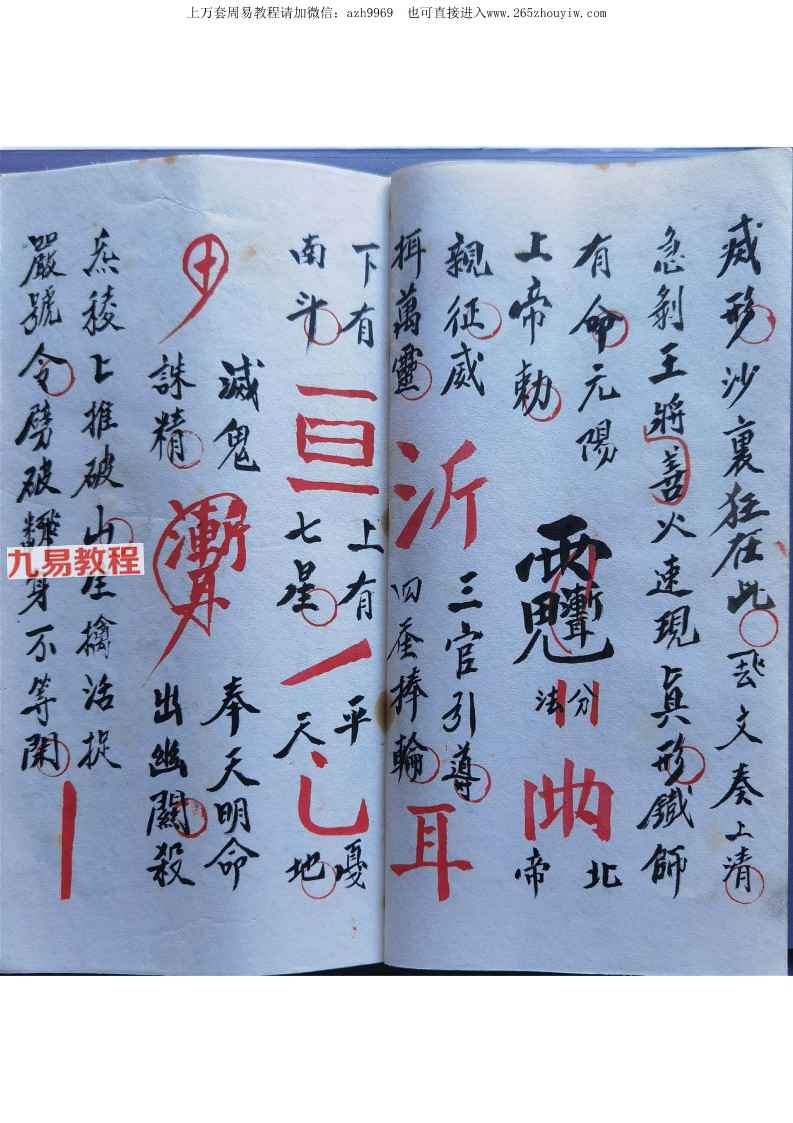 上万套周易教程请加微信：azh9969 也可直接进入www.265zhouyiw.com
威形沙裏狂在此飛文奏上清
急剝王將善火速現真形鐵師
有命元陽
上帝勅
分
法
北
帝
親征威
三官引導
萬靈
四
捧輪
沂
耳
下有
南斗
上有
七星
平
天
戛
地
滅鬼
誅精
奉天明命
出幽關殺
上推破山
生擒活捉
嚴號令劈破
身不等閑
九易教程